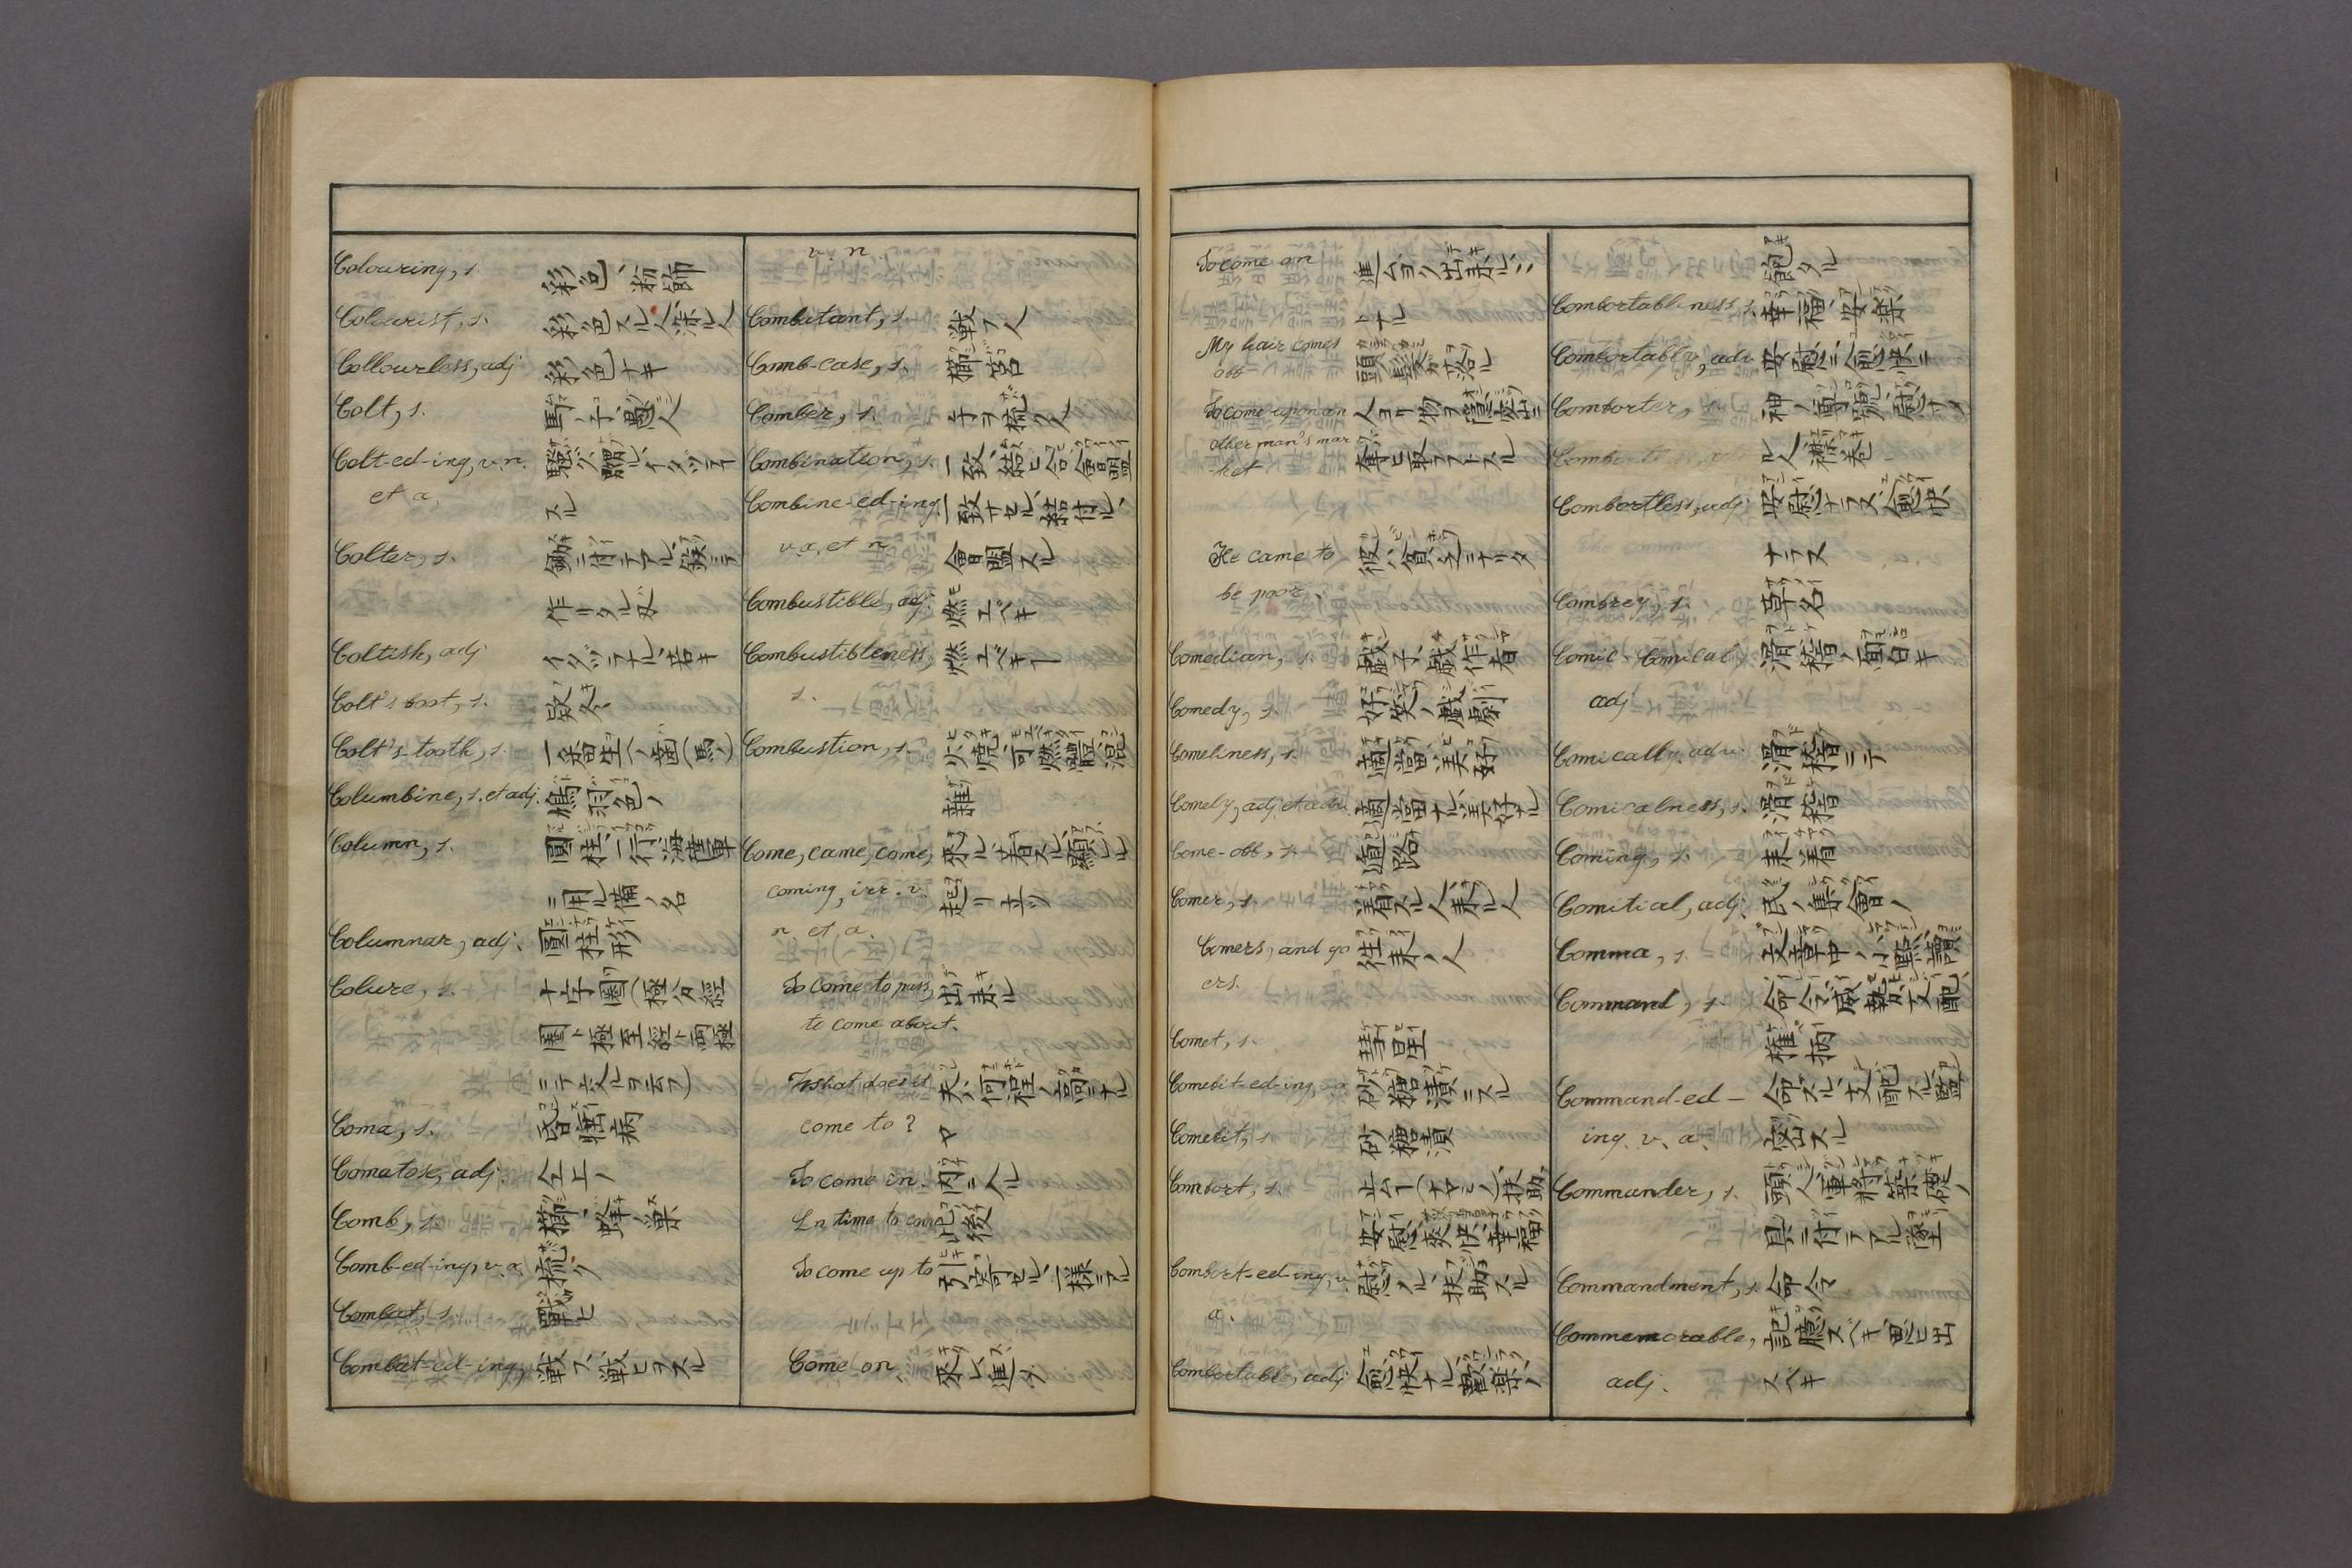 Colouring, s. 彩色、粉飾
Colourist, s. 彩色スル人、染ル人
Collourless, adj 彩色ナキ
Colt, s. 馬ノ子、愚人
Colt-ed-ing, v. n. 騒グ、イタヅラ
et a. スル
Colter, s.
作リタル刃
Coltish, adj イタヅラナル、若キ
Colt's foot, s. 款冬
Colt's-tooth, s. 一番生ヘノ歯(馬ノ)
Columbine, s. et adj. 鳩羽色ノ
Column, s. 圓柱、一行、海陸軍
ニ用ル備ノ名
Columnar, adj. 圓柱形
Colure, s. 十字圏(極分経
圏ト極至経ト両極
Coma, s. 昏睡病
Comatose, adj. 仝上ノ
Comb, s. 櫛、蜂ノ巣
Comb-ed-ing, v. a. 梳ク
Combat, s. 戰ヒ
Combat-ed-ing, 戦フ、戦ヒヲスル
v. n.
Combatant, s. 戦フ人
Comb-case, s. 櫛笥
Comber, s. 毛ヲ梳ク人
Combination, s. 一致、結ヒ合、會盟
Combine-ed-ing 一致サセル、結付ル、
v. a. et n. 會盟スル
Combustible, adj. 燃エベキ
Combustibleness, 燃エベキ
s.
Combustion, s. 火焼、可燃體、混
雑
Come, came, come, 来ル、着スル、顯ルル
coming, irr. v. 起リ立ツ
n et a.
To come to pass, 出来ル
to come about.
What does is 夫ハ何程ノ高ニナル
come to? ヤ
To come in. 内ニ入ル
In time to come 此後
To come up to 引寄セル、一様ニナル
Come on, 来レ、進メ
To come on 進ム、ヨク出来ル
トナル
My hair comes 頭髪ガ落ル
off
To come upon an 人ヨリ物ヲ
other man's mar 奪ヒ取ラントスル
-ket
He came to 彼ハ貧乏ニナリタ
be poor.
Comedian, s. 戯子、戯作者
Comedy, s. 好笑ノ戯劇
Comeliness, s. 適當、美好
Comely, adj. et adv. 適當ナル、美好ナル
Come-off, s. 遁路
Comer, s. 着スル人、来ル人
Comers, and go 往来ノ人
ers.
Comet, s. 彗星
Comefit-ed-ing, v. a. 砂糖漬ニスル
Comefit, s. 砂糖漬
Comfort, s. 扶助、
安慰、爽快、幸福
Comfort-ed-ing, v. 慰ムル、扶助スル
a.
Comfortable, adj 愈快ナル、歡楽ノ
飽タル
Comfortableness, s. 幸福、安楽
Comfortably, adv. 安慰ニ、愈快ニ
Comforter, s. 神ノ尊號、慰ナ
ル人、襟巻
Comfortless, adj 安慰ナラズ、愈快
ナラズ
Comfrey, s. 草名
Comic - Comical, 滑稽ノ、面白キ
adj
Comically, adv. 滑稽ニテ
Comicalness, s. 滑稽
Coming, s. 来着
Comitial, adj. 民ノ集會ノ
Comma, s. 文章中ノ小點、讀
Command, s. 命令、威勢、支配、
権柄
Command-ed- 命スル、支配スル、監
ing, v. a.
Commander, s. 頭人、軍将、築礎ノ
具ニ付テアル
Commandment, s. 命令
Commemorable, 記憶スベキ、思ヒ出
adj. スベキ